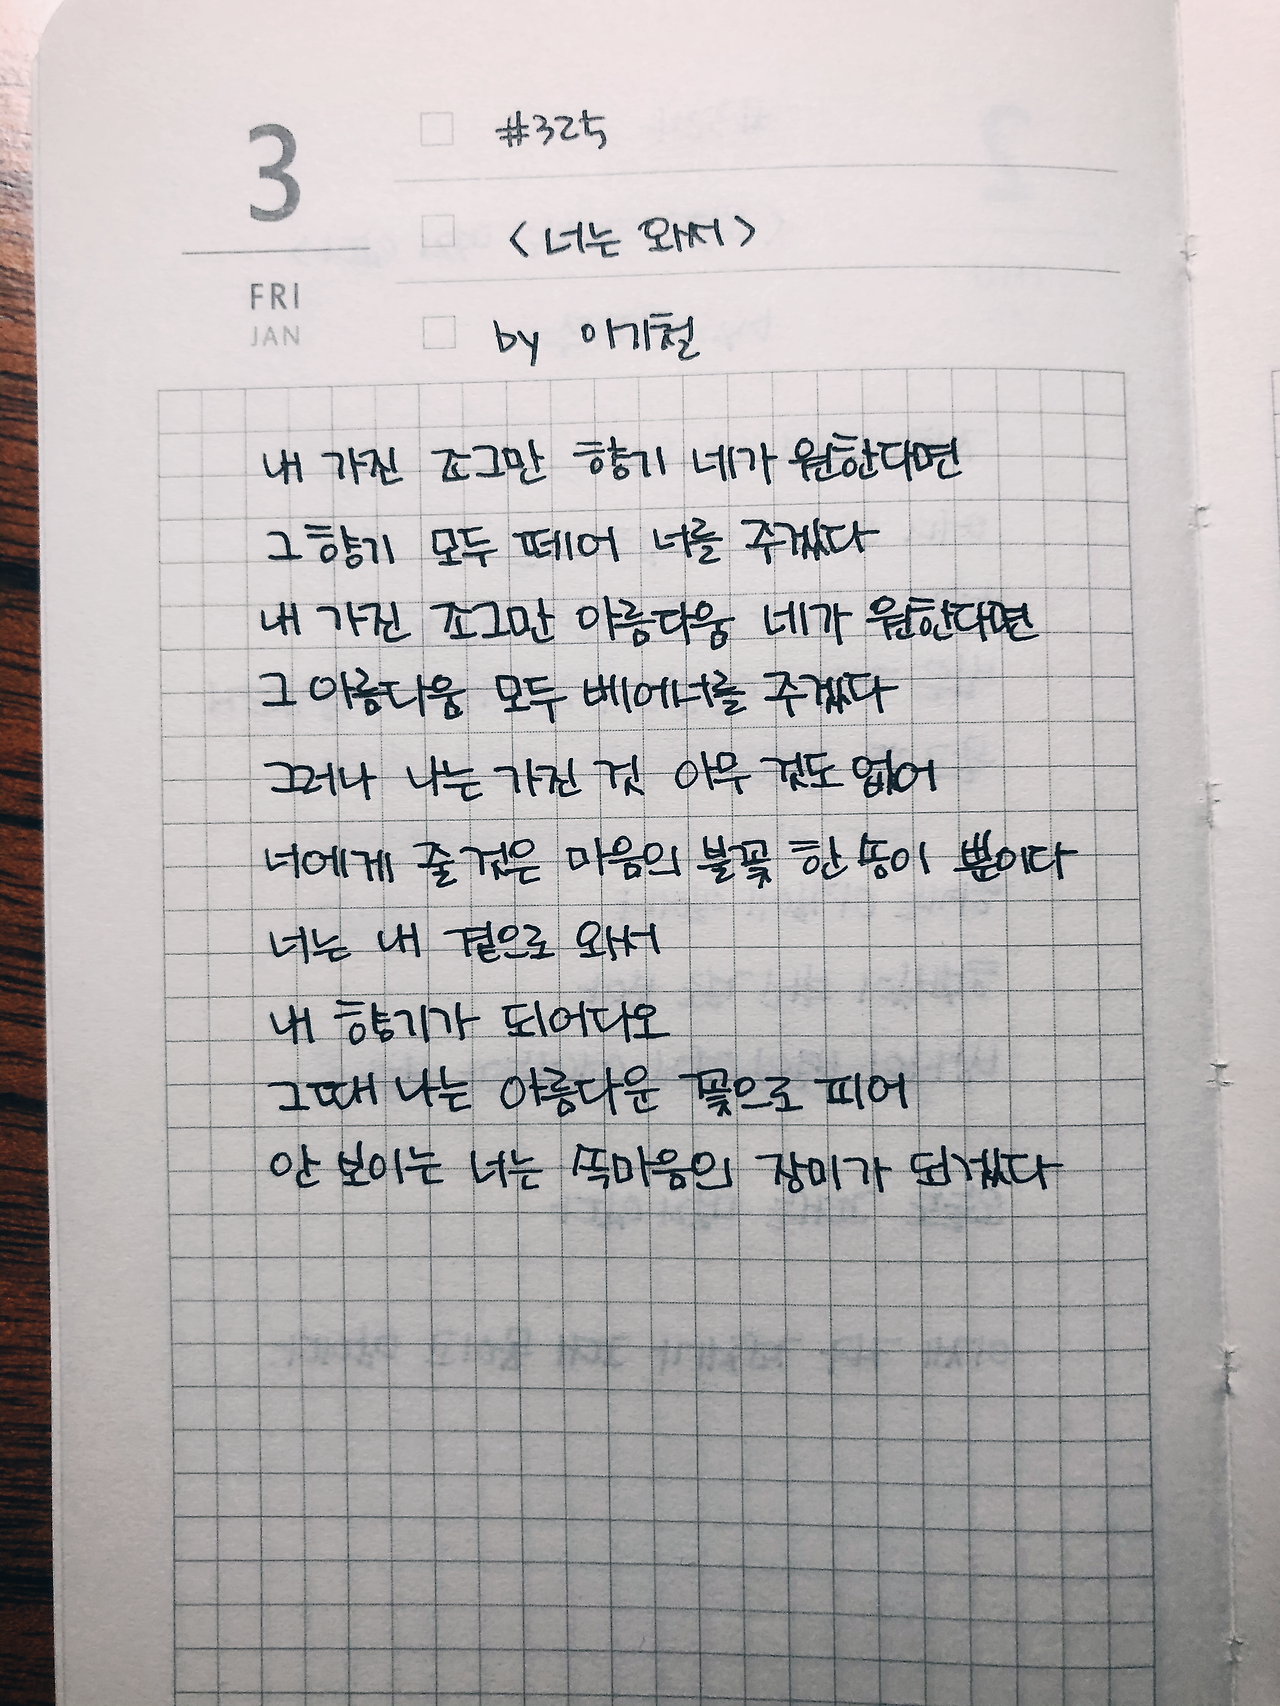 3
FRI
JAN
#325
<너는 와서>
by 이기철
내 가진 조그만 향기 네가 원한다면
그 향기 모두 떼어 너를 주겠다
내 가진 조그만 아름다움 네가 원한다면
그 아름다움 모두 베어너를 주겠다
그러나 나는 가진 것 아무 것도 없어
너에게 줄 것은 마음의 불꽃 한 송이 뿐이다
너는 내 곁으로 와서
내 향기가 되어다오
그때 나는 아름다운 꽃으로 피어
안 보이는 너는 쪽마음의 장미가 되겠다